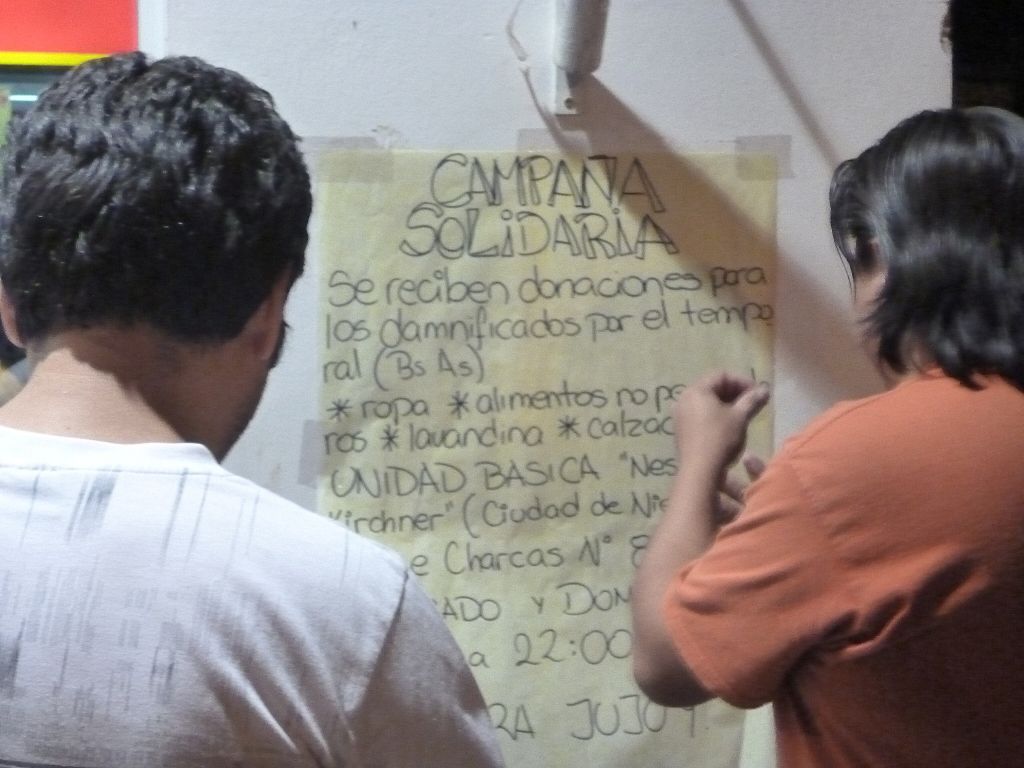 CAMPAÑA
SOLIDARIA
Se reciben donaciones para
los damnificados por el tempo
ral (Bs As)
* ropa * alimentos no
ros * lavandina *
UNIDAD BASICA
Kirchner" (Ciudad de
Charcas N°
Y
a 22:00
JUJUY.